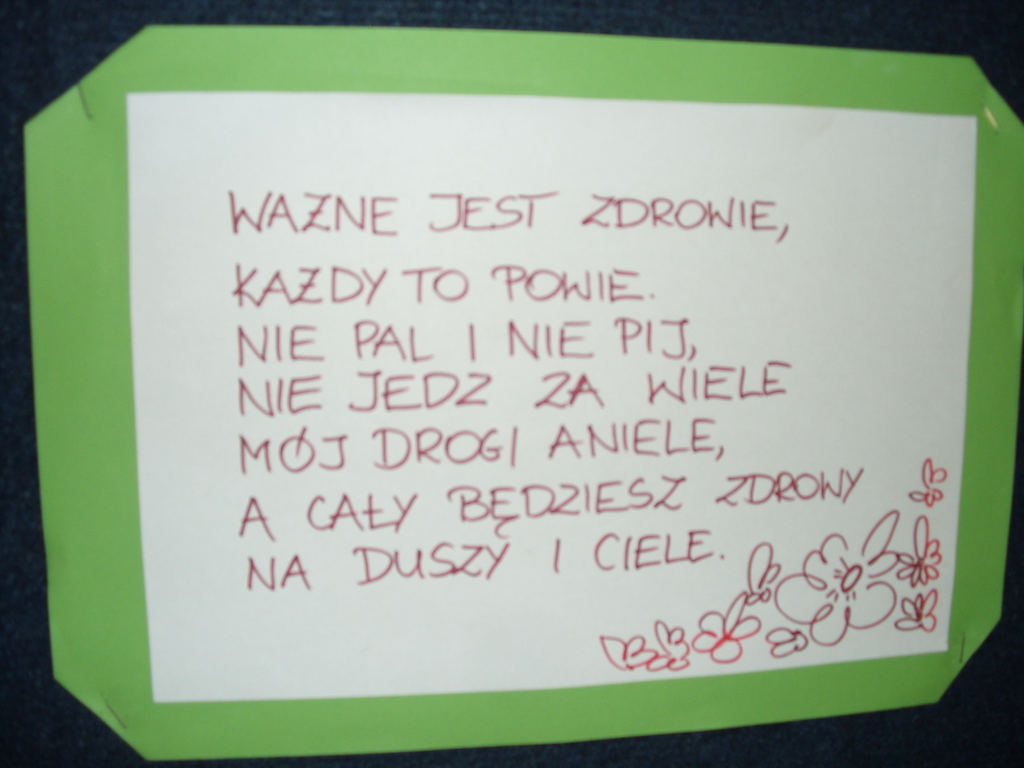 WAŻNE JEST ZDROWIE,
KAŻDY TO POWIE.
NIE PAL I NIE PIJ,
NIE JEDZ ZA WIELE
MÓJ DROGI ANIELE,
A CAŁY BĘDZIESZ ZDROWY
NA DUSZY I CIELE.